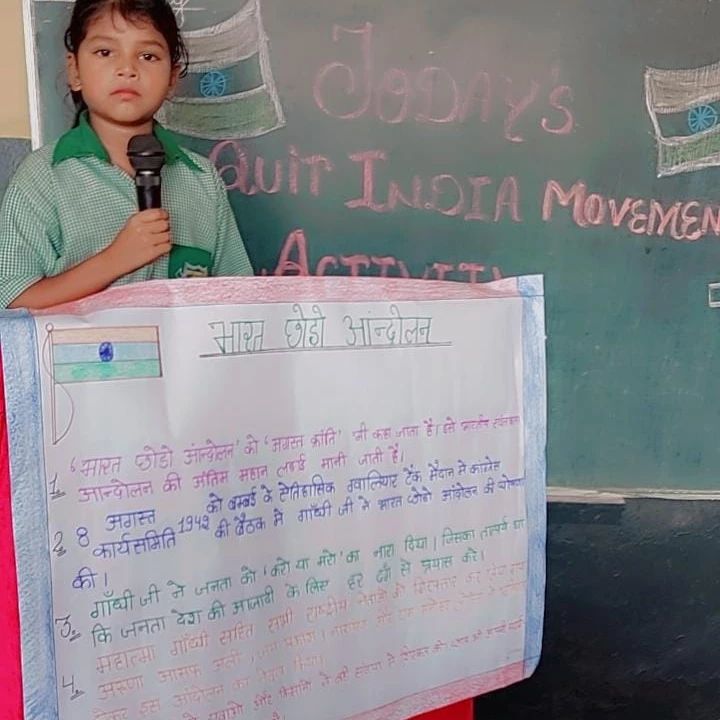 TODAY'S
QUIT INDIA MOVEMEN
ACTIVITY
भारत छोडो आंन्दोलन
1. 'भारत छोडो आंन्दोलन' को 'अगस्त क्रांति' भी कहा जाता है। इसे भारतीय
आन्दोलन की अंतिम महान लडाई मानी जाती है।
2. 8 अगस्त 1942 को बम्बई के ऐतिहासिक ग्वालियर टैंक मैदान मे कांग्रेस
कार्यसमिति की बैठक मे गाँधी जी ने भारत छोडो आंदोलन की घोषणा
की।
3. गाँधी जी ने जनता को 'करो या मरो' का नारा दिया। जिसका तात्पर्य था
कि जनता देश की आजादी के लिए हर ढंग से प्रयास करे।
4. महात्मा गाँधी सहित सभी राष्ट्रीय नेताओ को गिरफ्तार कर
अरूणा आसफ अली, जय प्रकाश नारायण और
इस आंदोलन का नेतृत्व किया।
और किसानो ने बडी संख्या मे